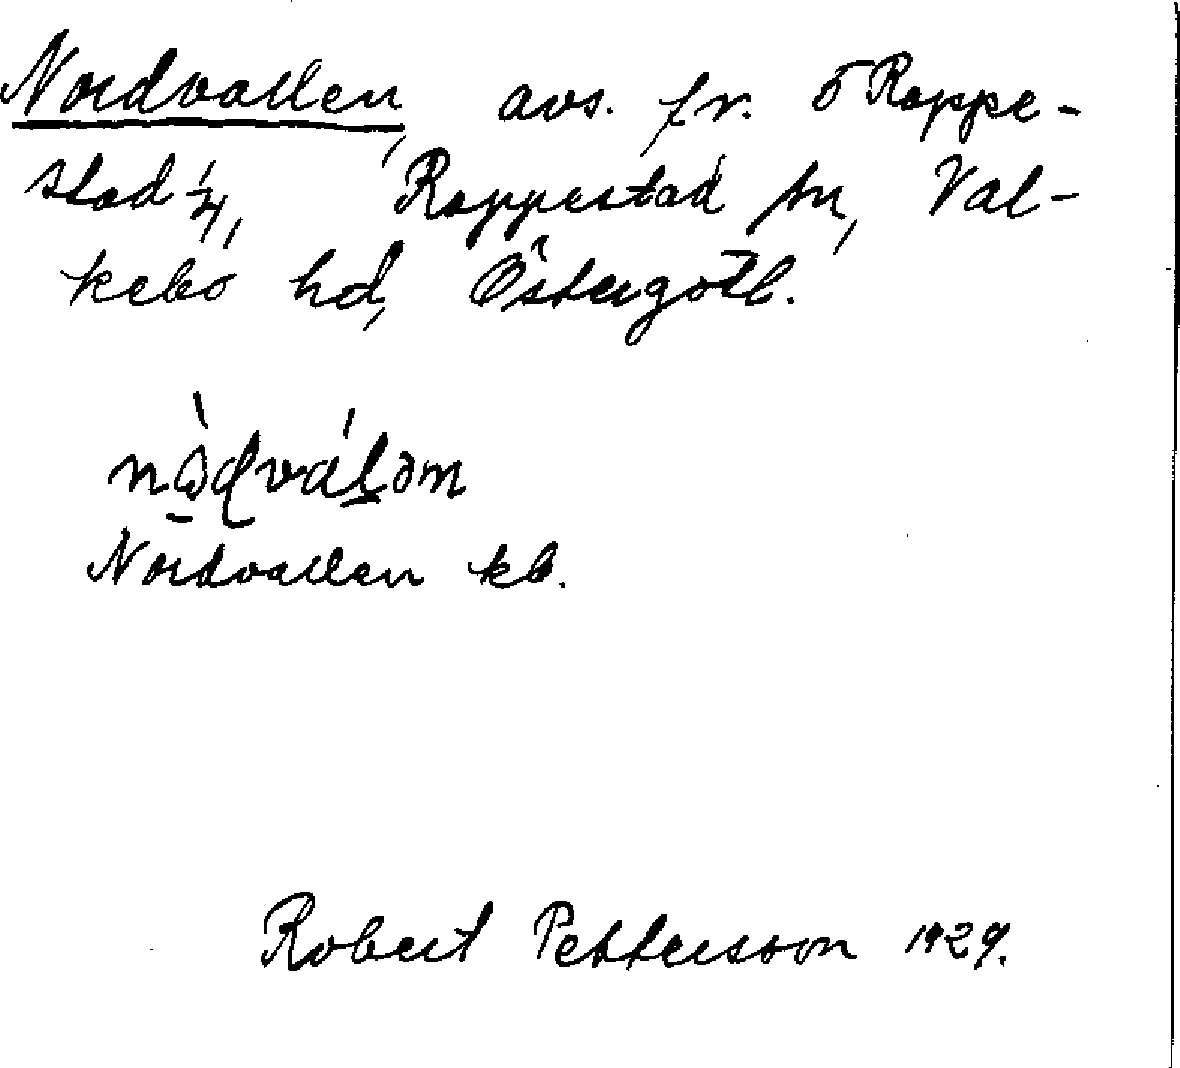 Nordvallen, avs. fr. ö Rappe-
stad ¼, Rappestad sn, Val-
kebo hd, Östergötl.
Nordvallen kb.
Robert Pettersson 1929.